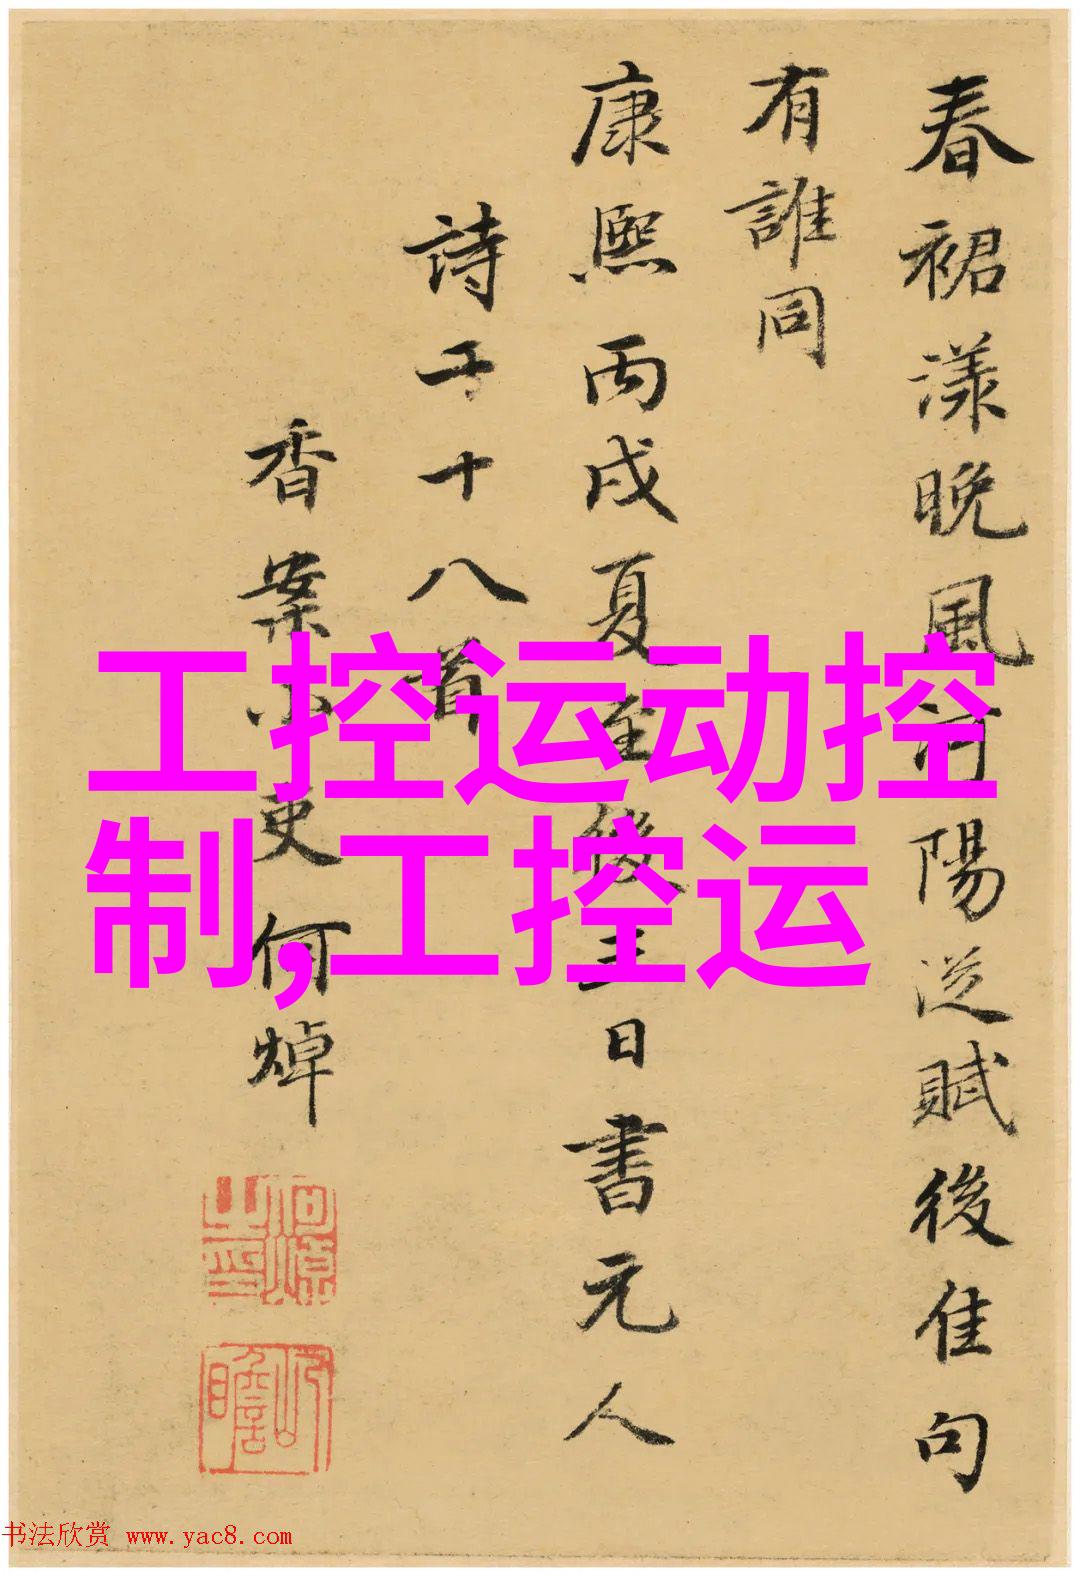 春裙漾晚風河陽從賦後佳句
有誰同
康熙丙戌夏至後三日書元人
詩二十八首
香案小吏何焯
工控运动控
制,工控运
书法欣赏 www.yac8.com